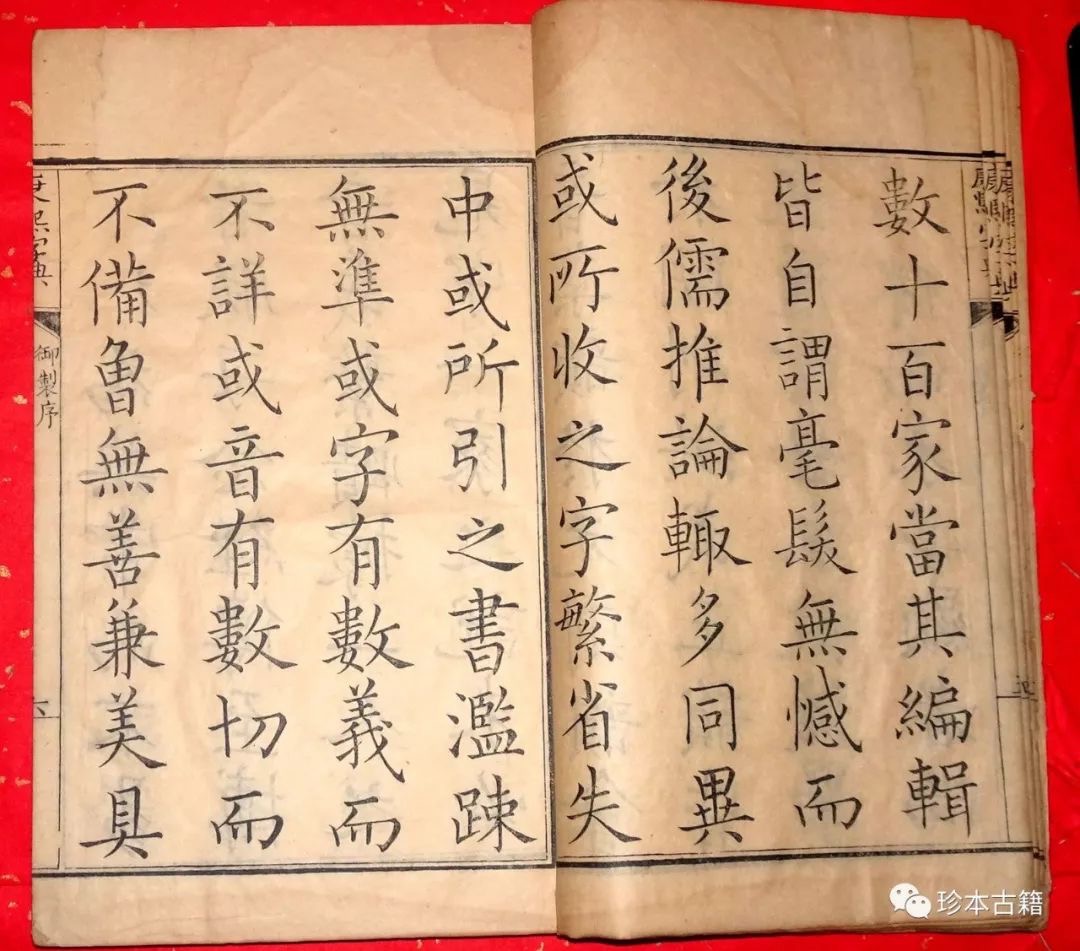 數十百家當其編輯
皆自謂毫髮無憾而
後儒推論輙多同異
或所收之字繁省失
中或所引之書濫踈
無準或字有數義而
不詳或音有數切而
不備曽無善兼美具
康熙字典
御製序
六
珍本古籍